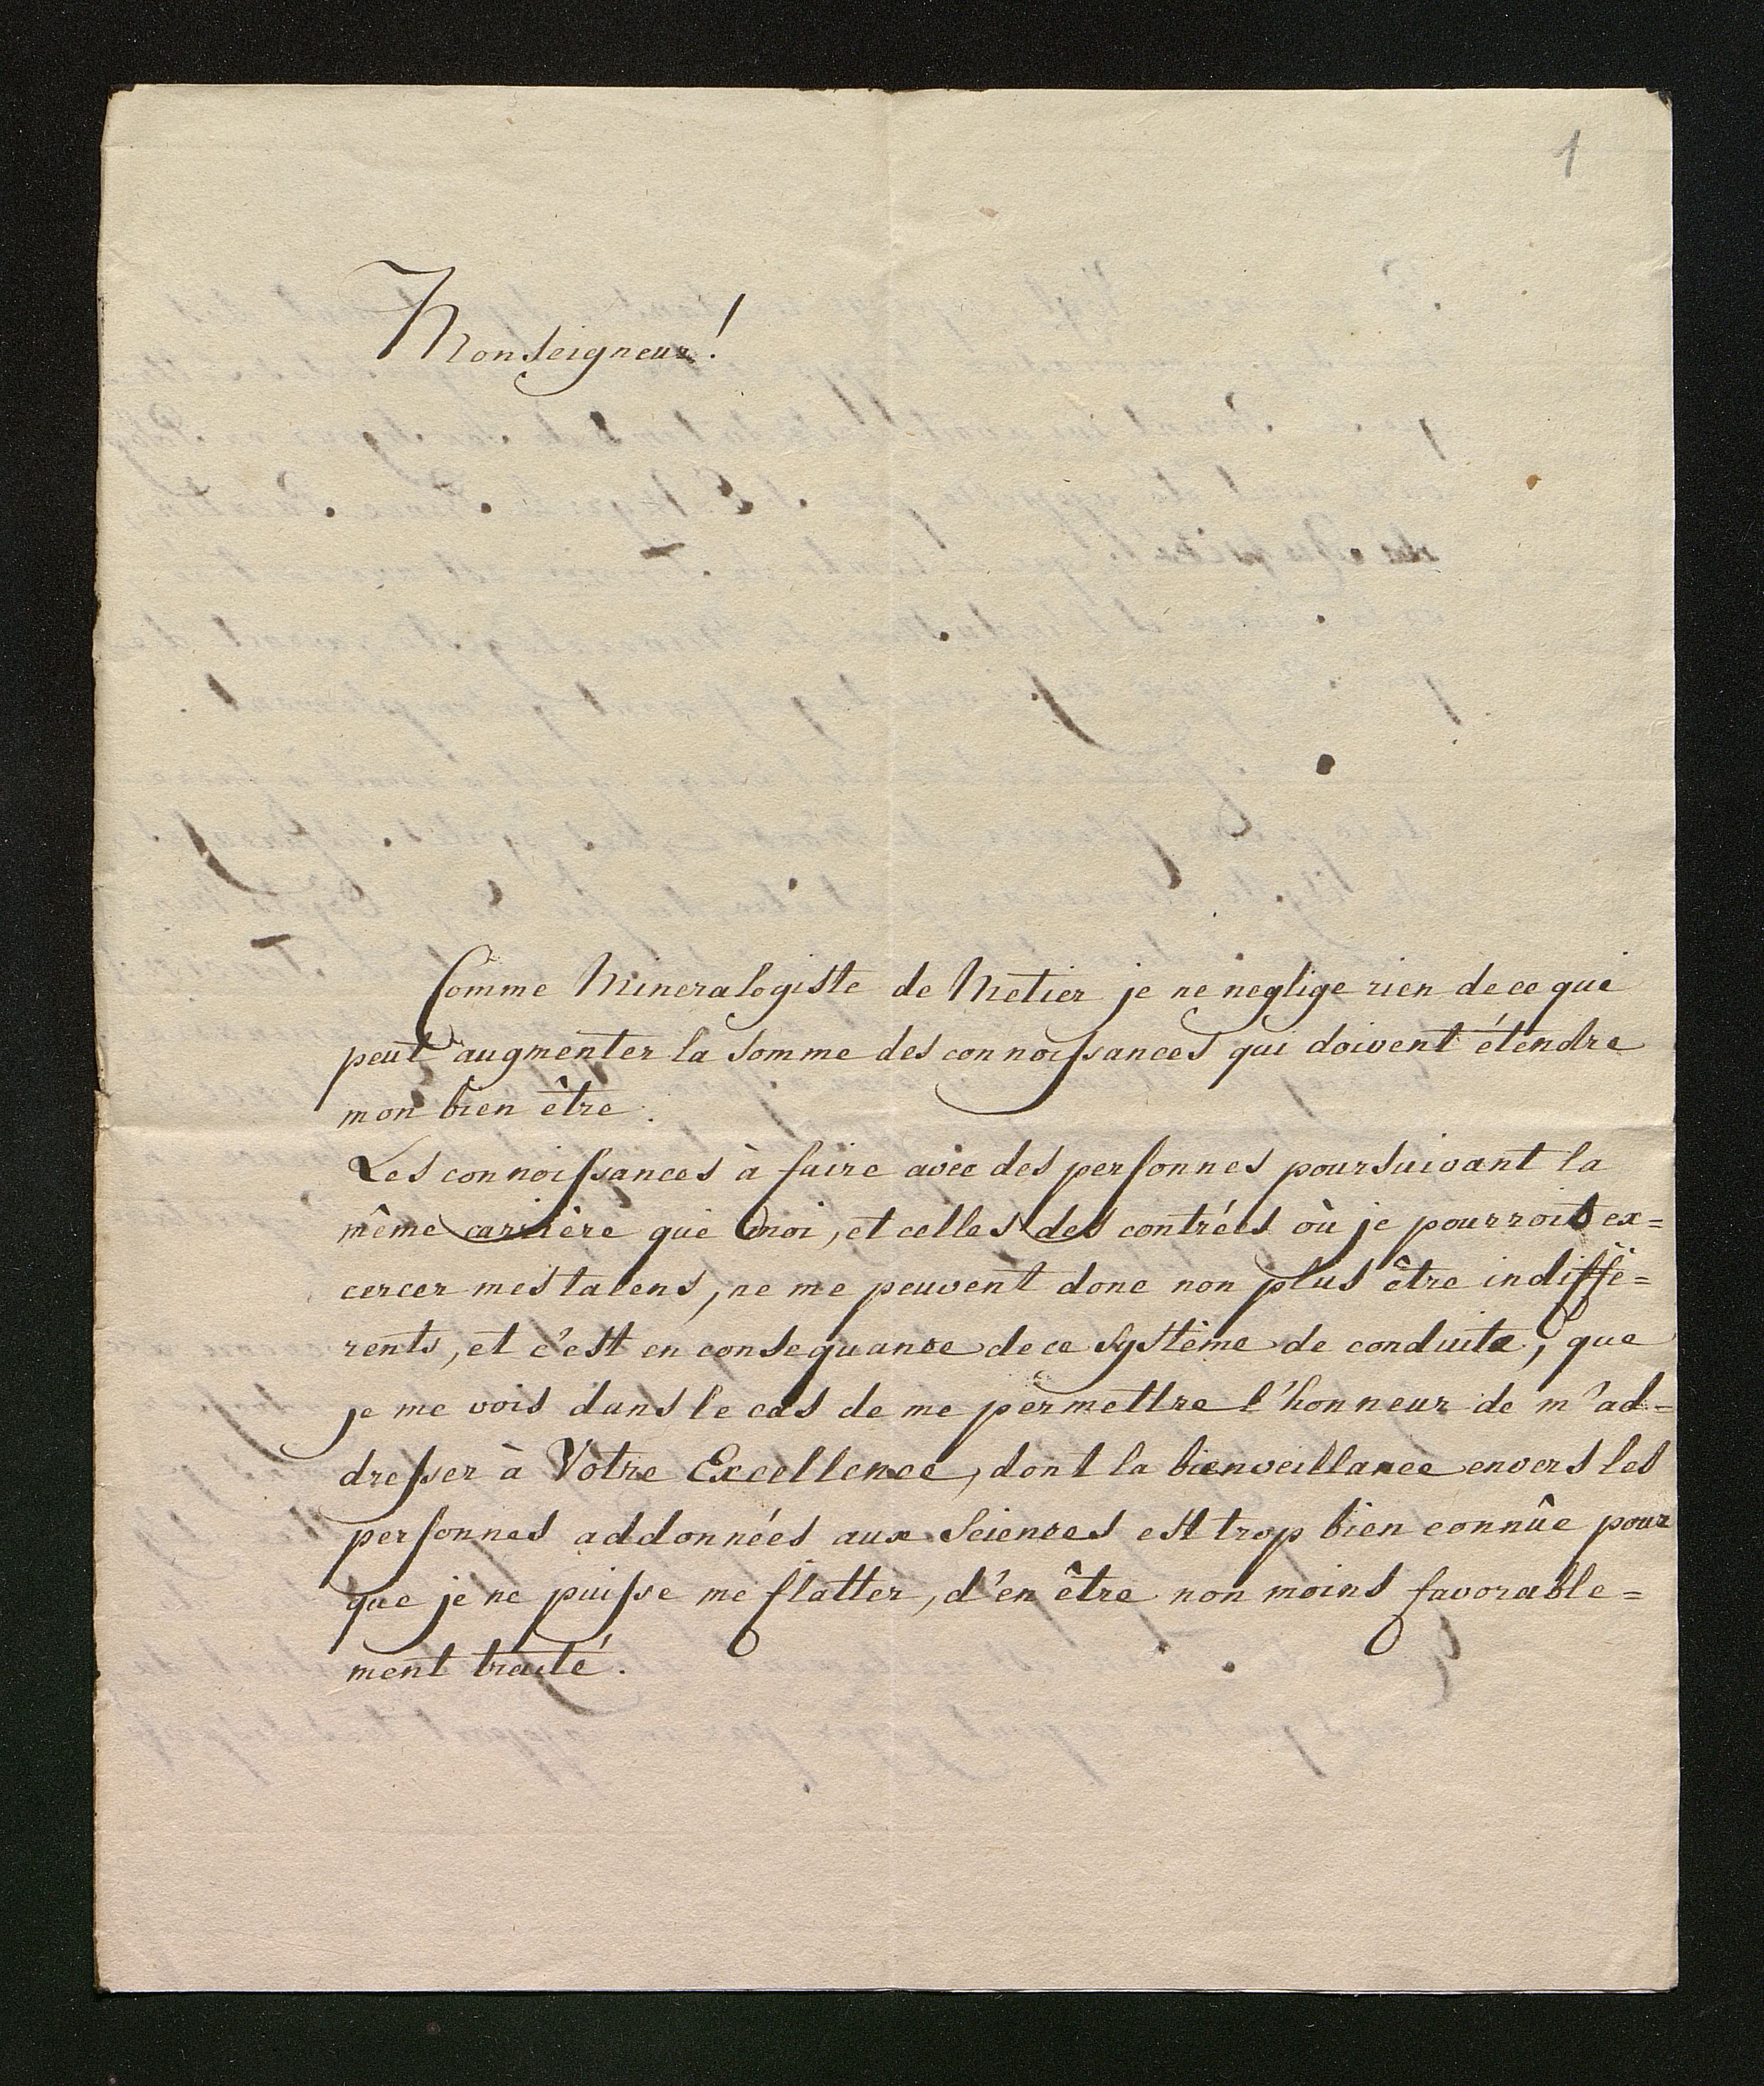 1
Monseigneur!
Comme Mineralogiste de Metier je ne neglige rien de ce qui
peut augmenter la somme des connoissances qui doivent étendre
mon bien être.
Les connoissances à faire avec des personnes poursuivant la
même carrière que moi, et celles des contrées où je pourrois ex=
cercer mes talens, ne me peuvent donc non plus être indiffé=
rents, et c'est en consequance de ce système de conduite, que
je me vois dans le cas de me permettre l'honneur de m'ad=
dresser à Votre Excellence, dont la bienveillance envers les
personnes addonnées aux Sciences est trop bien connûe pour
que je ne puisse me flatter, d'en être non moins favorable=
ment traité.